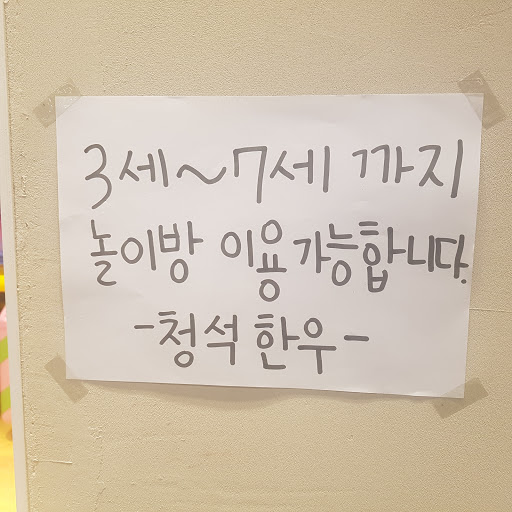 3세~7세 까지
놀이방 이용가능합니다.
-청석한우-